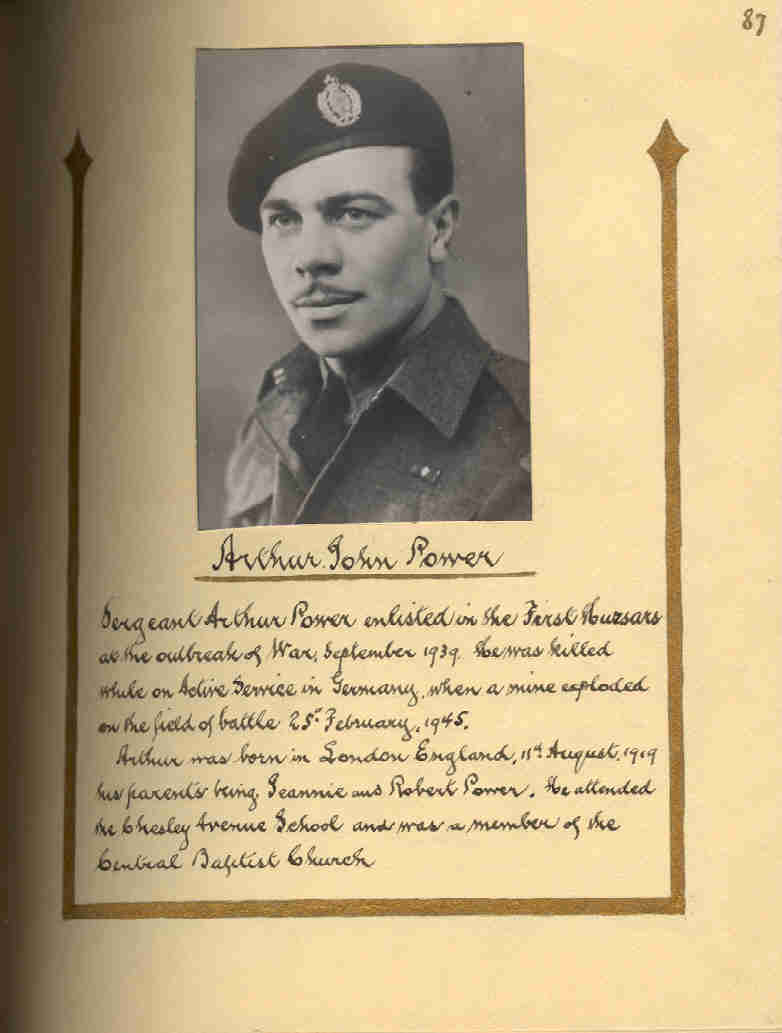 87
Arthur John Power
Sergeant Arthur Power enlisted in the First Huzsars
at the outbreak of War, September 1939. He was killed
while on Active Service in Germany, when a mine exploded
on the field of battle 25th February, 1945.
Arthur was born in London England, 11th August, 1919
his parents being, Jeannie and Robert Power. He attended
the Chesley Avenue School and was a member of the
Central Baptist Church